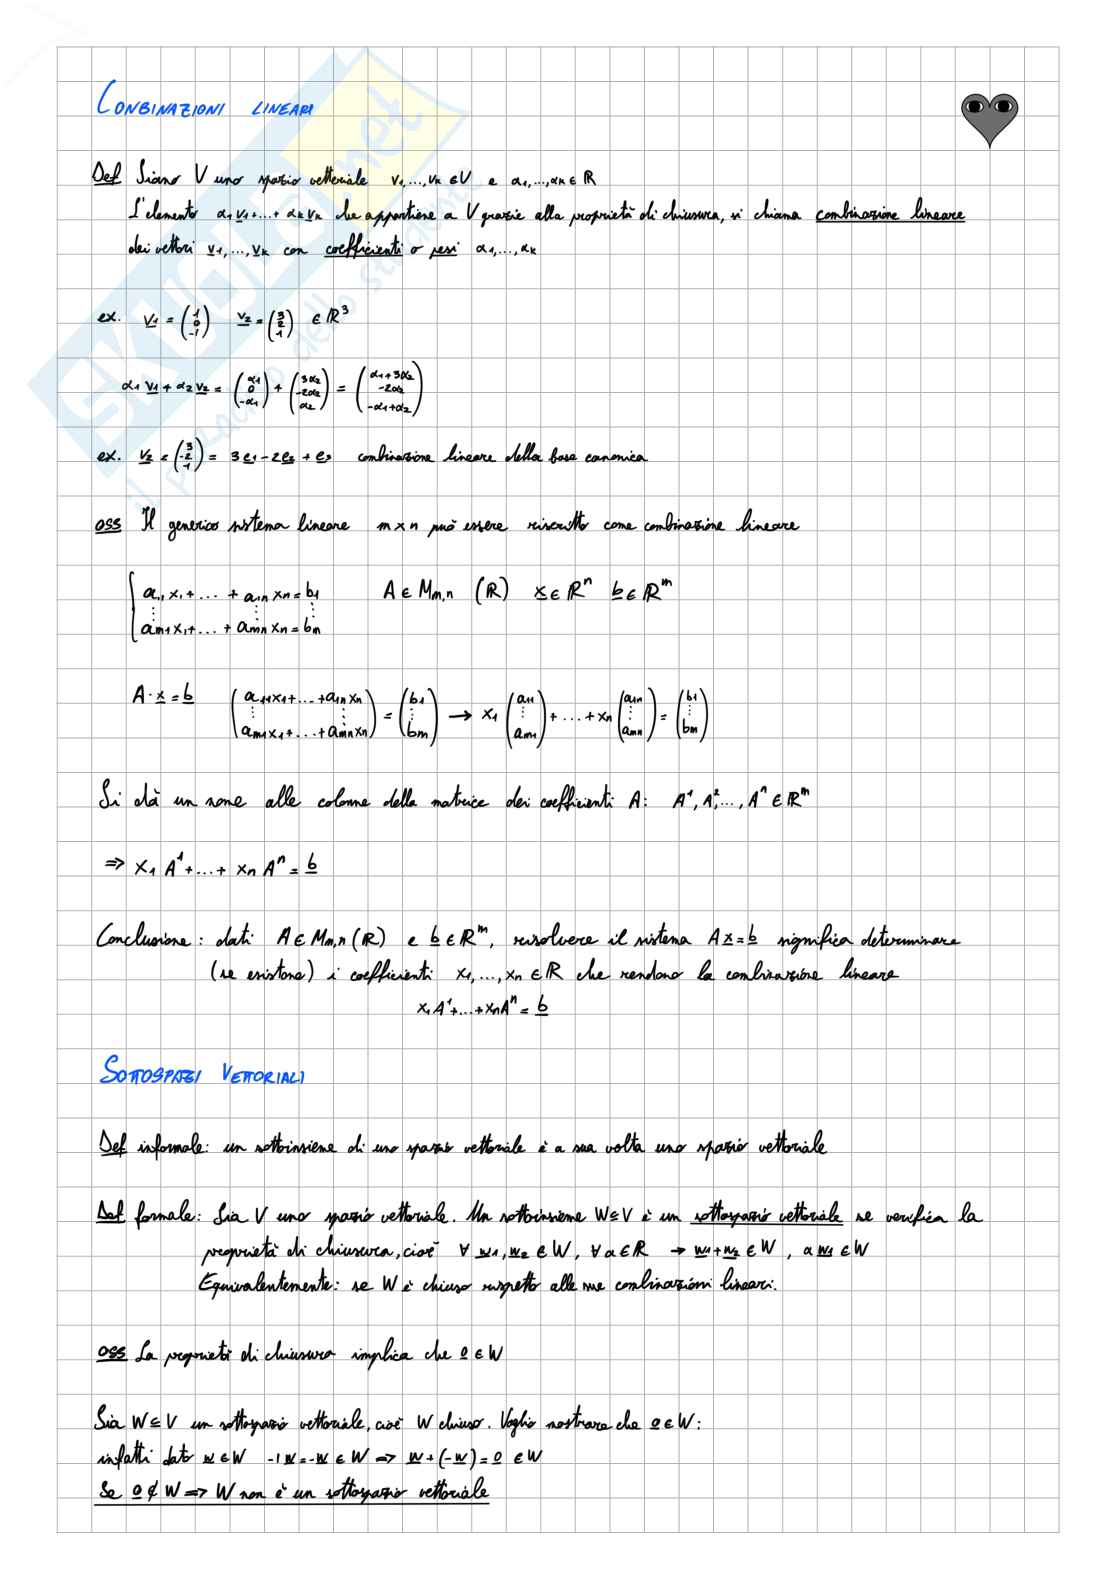 COMBINAZIONI LINEARI
Def Siano V uno spazio vettoriale v₁,...,vₖ ∈ V e α₁,...,αₖ ∈ ℝ
L'elemento α₁v₁+...+ αₖvₖ che appartiene a V grazie alla proprietà di chiusura, si chiama combinazione lineare
dei vettori v₁,...,vₖ con coefficienti o pesi α₁,...,αₖ
ex. v₁ = (1 0 -1) v₂ = (3 2 1) ∈ ℝ³
α₁ v₁ + α₂ v₂ = (α₁ 0 -α₁) + (3α₂ -2α₂ α₂) = (α₁+3α₂ -2α₂ -α₁+α₂)
ex. v₂ = (3 -2 1) = 3e₁ - 2e₂ + e₃ combinazione lineare della base canonica
OSS Il generico sistema lineare m×n può essere riscritto come combinazione lineare
{ a₁₁x₁+...+ a₁ₙxₙ = b₁ A ∈ Mₘ,ₙ (ℝ) x ∈ ℝⁿ b ∈ ℝᵐ
⋮ ⋮ ⋮
aₘ₁x₁+...+ aₘₙxₙ = bₘ
A·x = b (a₁₁x₁+...+a₁ₙxₙ ⋮ aₘ₁x₁+...+aₘₙxₙ) = (b₁ ⋮ bₘ) → x₁ (a₁₁ ⋮ aₘ₁) + ... + xₙ (a₁ₙ ⋮ aₘₙ) = (b₁ ⋮ bₘ)
Si dà un nome alle colonne della matrice dei coefficienti A: A¹, A²,..., Aⁿ ∈ ℝᵐ
⇒ x₁ A¹+...+ xₙ Aⁿ = b
Conclusione: dati A ∈ Mₘ,ₙ(ℝ) e b ∈ ℝᵐ, risolvere il sistema Ax = b significa determinare
(se esistono) i coefficienti x₁,...,xₙ ∈ ℝ che rendono la combinazione lineare
x₁A¹+...+xₙAⁿ = b
SOTTOSPAZI VETTORIALI
Def informale: un sottoinsieme di uno spazio vettoriale è a sua volta uno spazio vettoriale
Def formale: Sia V uno spazio vettoriale. Un sottoinsieme W⊆V è un sottospazio vettoriale se verifica la
proprietà di chiusura, cioè ∀ w₁, w₂ ∈ W, ∀ α ∈ ℝ → w₁+w₂ ∈ W, α w₁ ∈ W
Equivalentemente: se W è chiuso rispetto alle sue combinazioni lineari.
OSS La proprietà di chiusura implica che 0 ∈ W
Sia W⊆V un sottospazio vettoriale, cioè W chiuso. Voglio mostrare che 0 ∈ W:
infatti dato w ∈ W -1w = -w ∈ W ⇒ w + (-w) = 0 ∈ W
Se 0 ∉ W ⇒ W non è un sottospazio vettoriale
SKUOLA.net